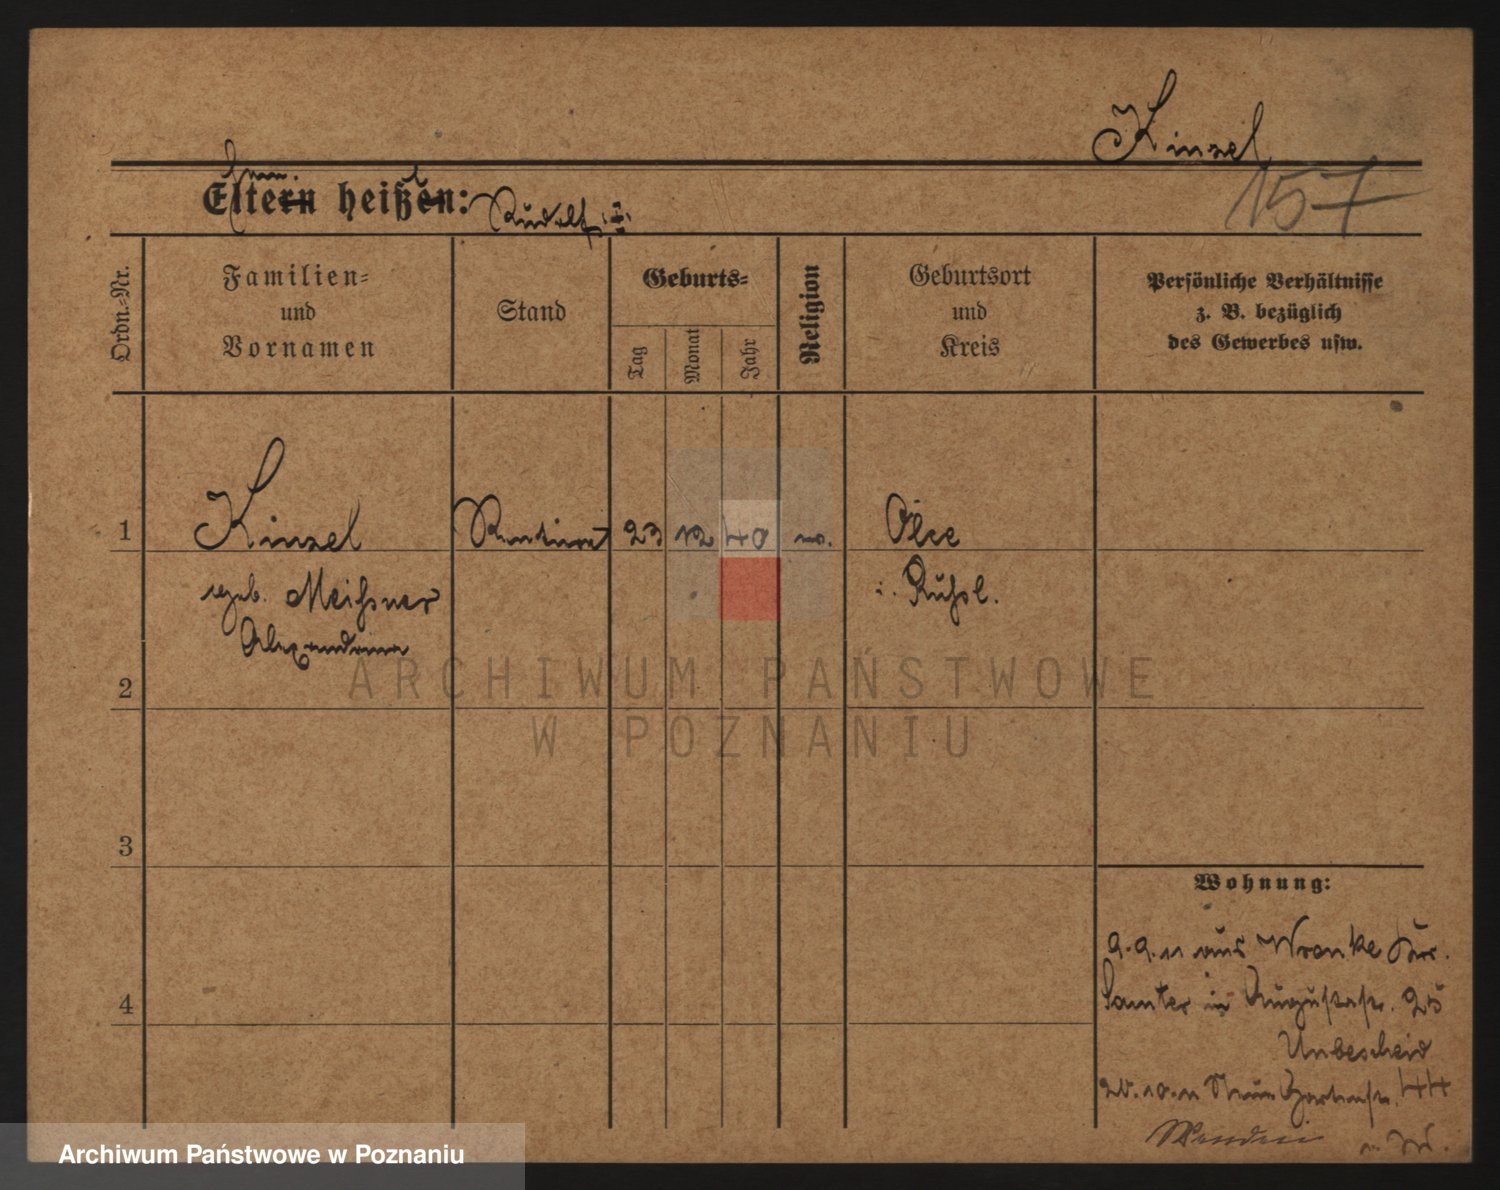 Kinzel
157
Eltern heißen: Rudolf
Familien- und Vornamen
Ordn.-Nr.
Stand
Geburts-
Tag
Monat
Jahr
Religion
Geburtsort und Kreis
Persönliche Verhältnisse
z. B. bezüglich
des Gewerbes usw.
1 Kinzel Rentiere 23 12 40
geb. Meißner
Alexandrina
2
3
4
Wohnung:
9.9.11 aus Wronke Kr.
Samter in Augustastr. 25
Unbescheid
Gartenstr. 44
ARCHIWUM PAŃSTWOWE
W POZNANIU
Archiwum Państwowe w Poznaniu